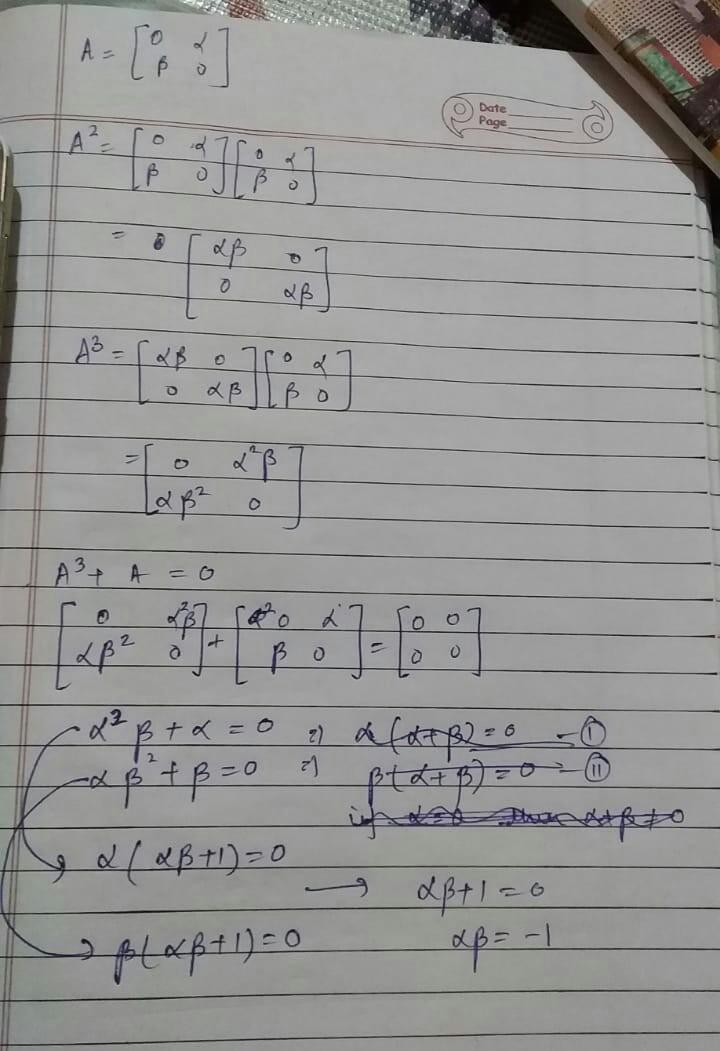 A = [0 α
β 0]
Date
Page
A² = [0 α
β 0] [0 α
β 0]
= [αβ 0
0 αβ]
A³ = [αβ 0
0 αβ] [0 α
β 0]
= [0 α²β
αβ² 0]
A³ + A = 0
[0 α²β
αβ² 0] + [0 α
β 0] = [0 0
0 0]
α²β + α = 0 ⇒ α(α+β) = 0 – Ⓘ
αβ² + β = 0 ⇒ β(α+β) = 0 – Ⓘⓘ
if α=0 then α+β ≠ 0
α(αβ+1) = 0
→ αβ+1 = 0
β(αβ+1) = 0
αβ = -1